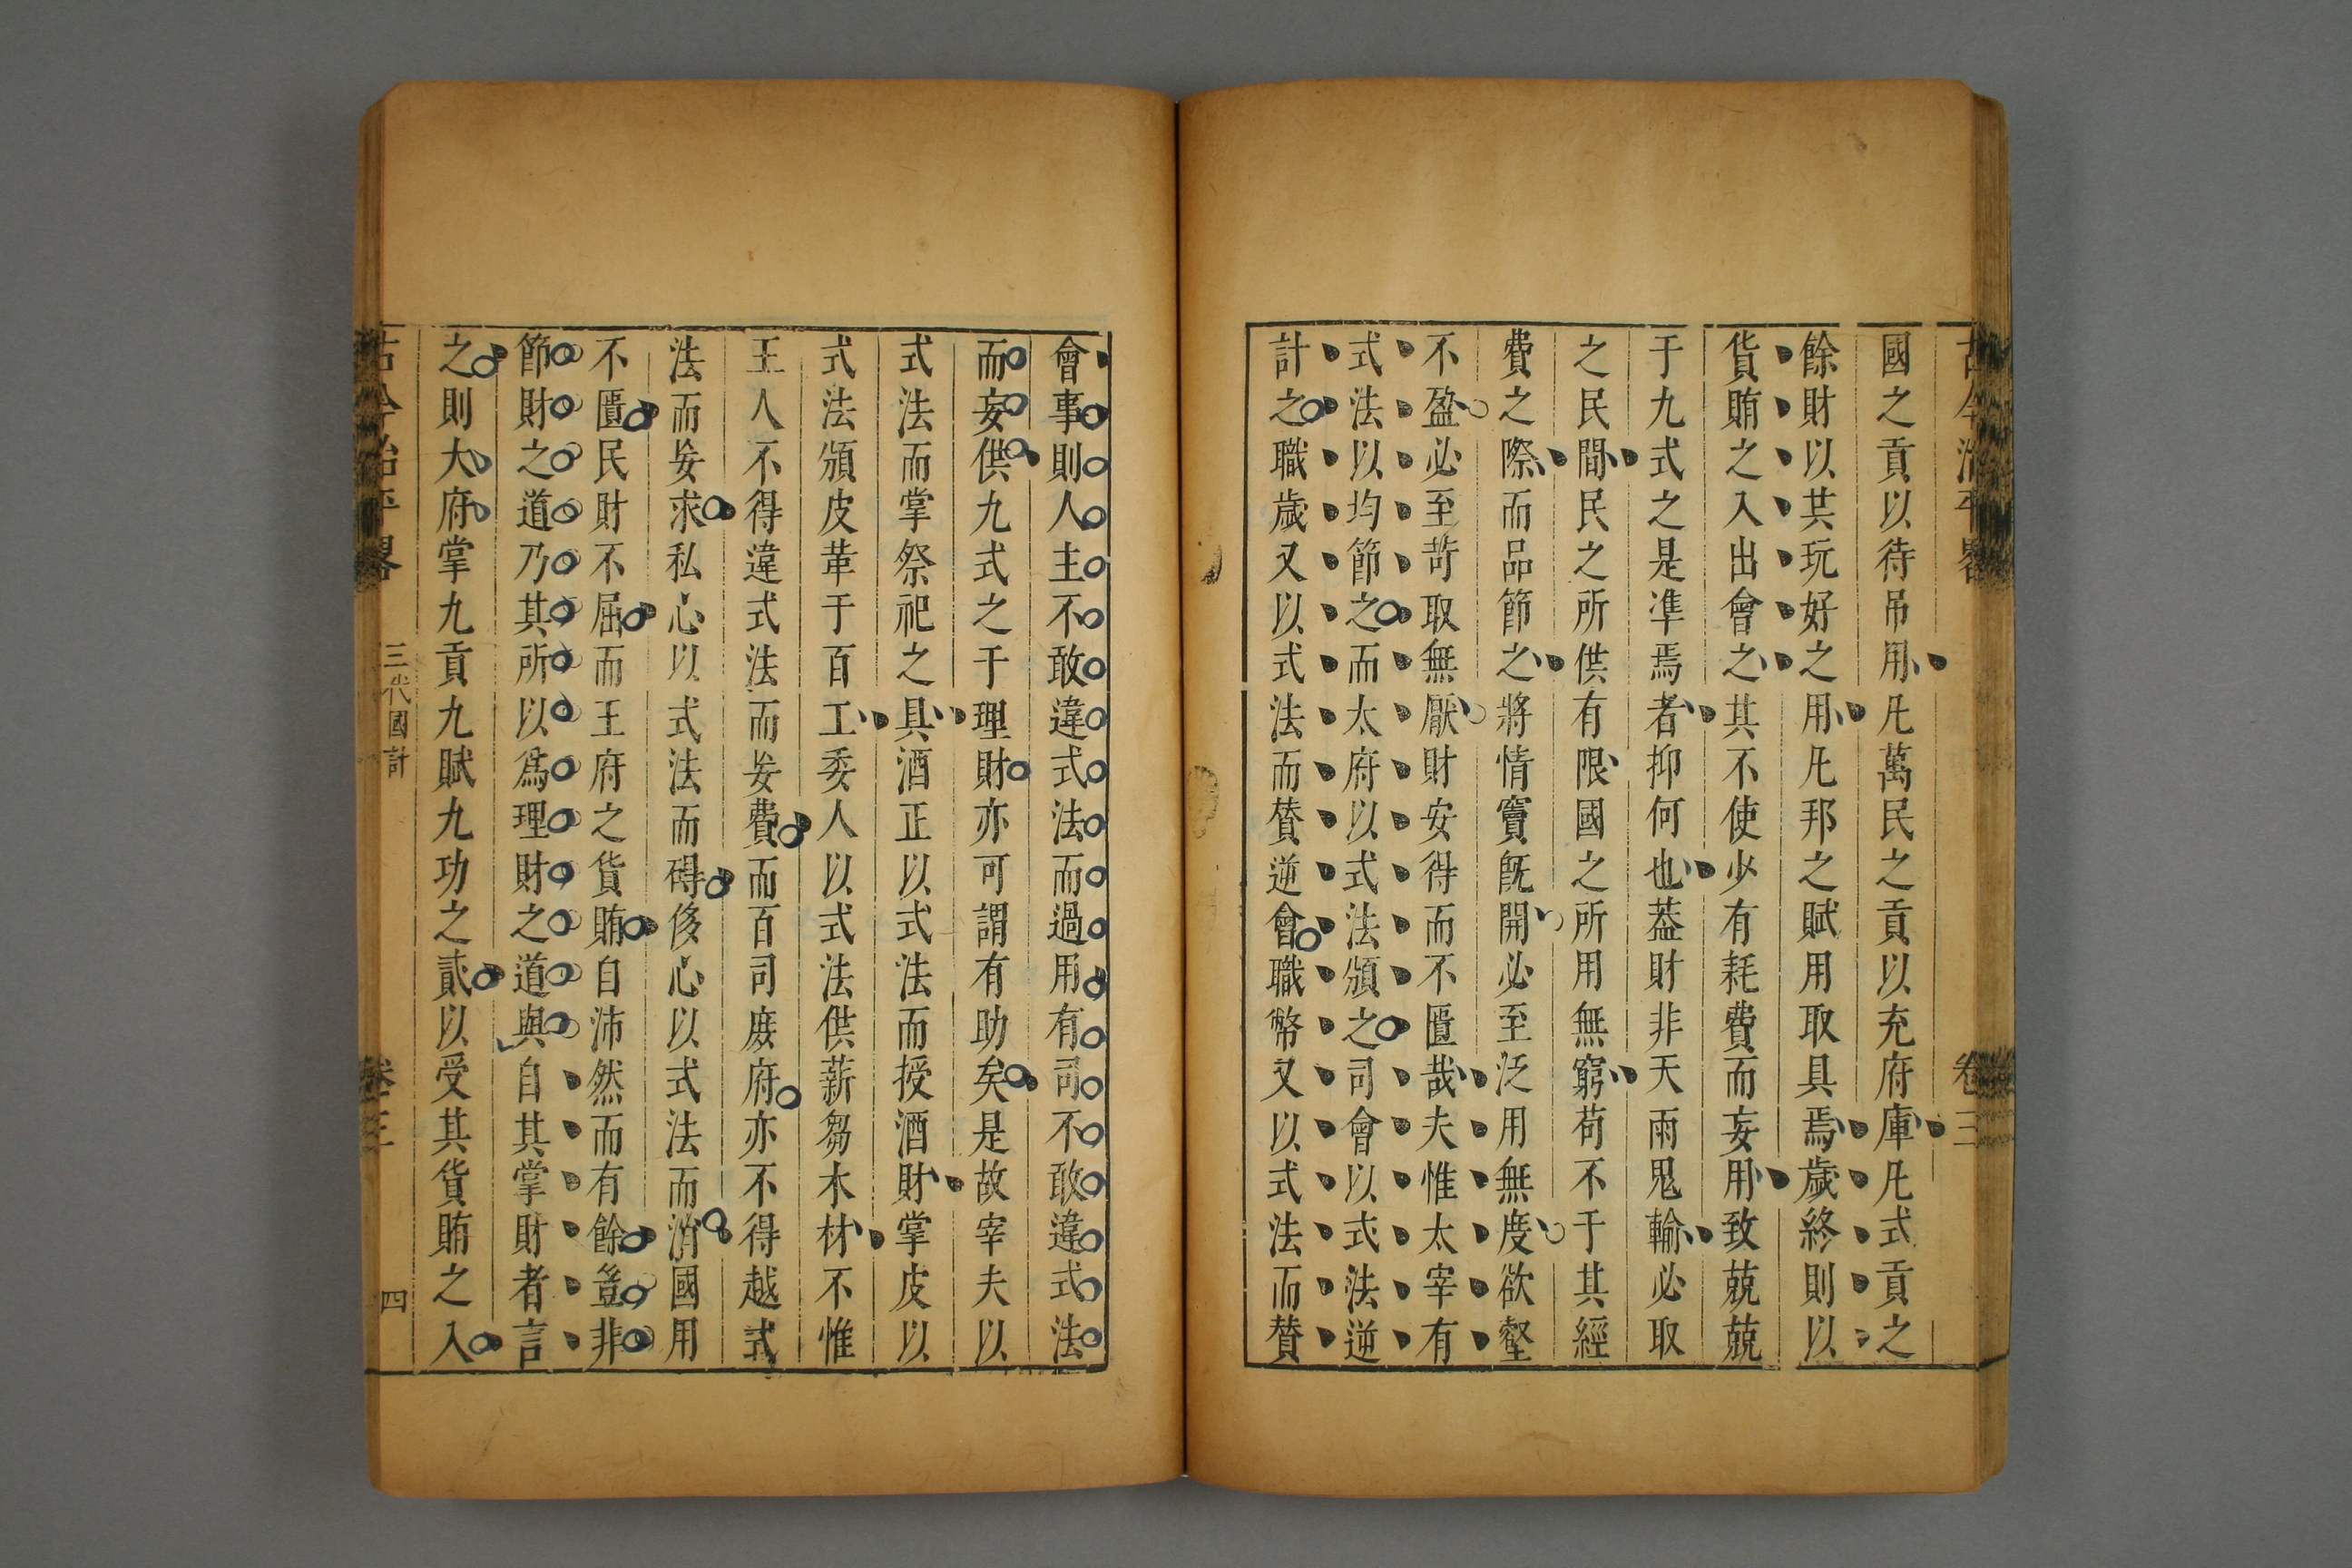 古今治平畧
卷三
國之貢以待吊用凡萬民之貢以充府庫凡式貢之
餘財以共玩好之用凡邦之賦用取具焉歲終則以
貨賄之入出會之其不使少有耗費而妄用致兢兢
于九式之是凖焉者抑何也葢財非天雨鬼輸必取
之民間民之所供有限國之所用無窮苟不于其經
費之際而品節之將情竇既開必至泛用無度欲壑
不盈必至苛取無厭財安得而不匱哉夫惟太宰有
式法以均節之而太府以式法頒之司會以式法逆
計之職歲又以式法而賛逆會職幣又以式法而賛
會事則人主不敢違式法而過用有司不敢違式法
而妄供九式之于理財亦可謂有助矣是故宰夫以
式法而掌祭祀之具酒正以式法而授酒財掌皮以
式法頒皮革于百工委人以式法供薪芻木材不惟
王人不得違式法而妄費而百司庶府亦不得越式
法而妄求私心以式法而碍侈心以式法而消國用
不匱民財不屈而王府之貨賄自沛然而有餘豈非
節財之道乃其所以爲理財之道與自其掌財者言
之則大府掌九貢九賦九功之貳以受其貨賄之入
古今治平畧
三代國計
卷三
四